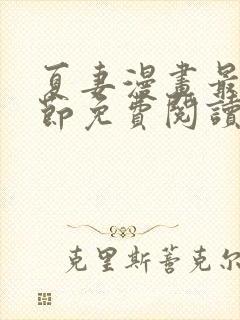 夏妻漫畫最
節免費閱讀
克里斯蒂克尔